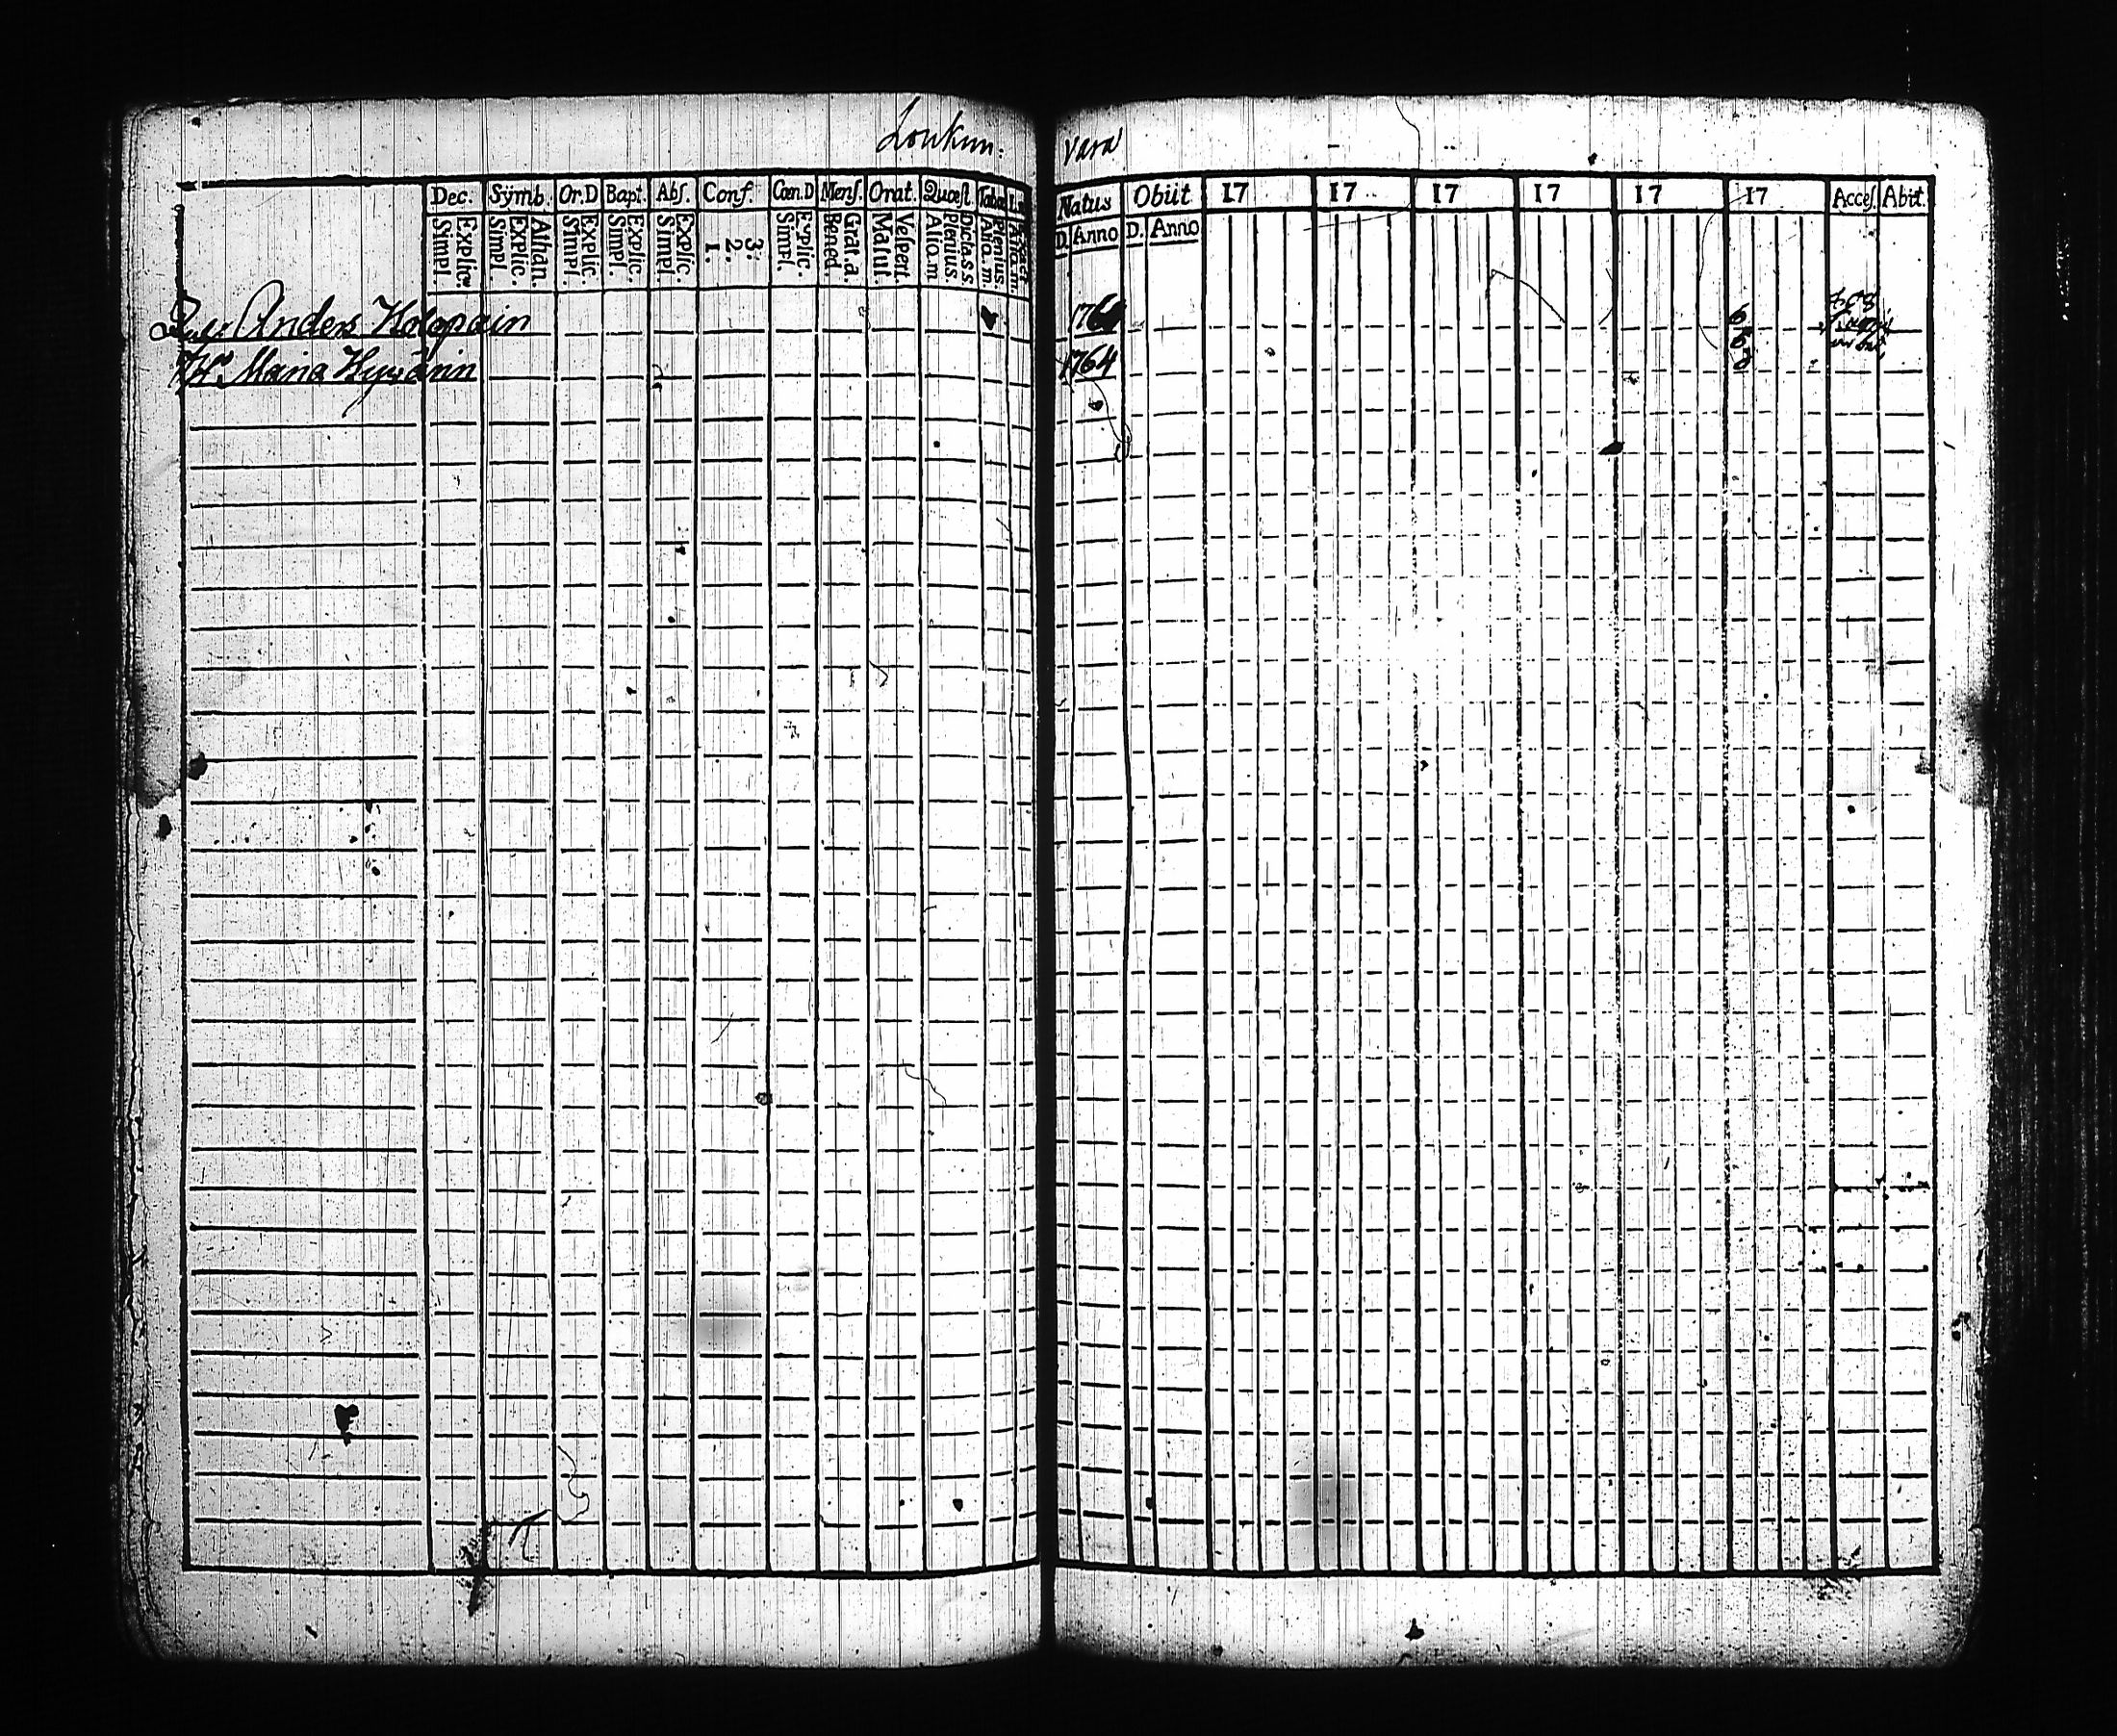 Loukun: vara
Dec. Symb. Or.D Bapt. Abs. Conf. Cœn.D Mens. Orat. Quœst. Natus Obiit 17 17 17 17 17 17 Acces. Abit.
Explic. Simpl. Athan. Explic. Simpl. Explic. Simpl. Explic. Simpl. Explic. Simpl. 3. 2. 1. Explic. Simpl. Grat.a. Bened. Vespert. Matut. Dictass. Plenius. Alio.m Plenius Alio.m D. Anno D. Anno
Anders Kolopain
Maria Hyvärin 1764